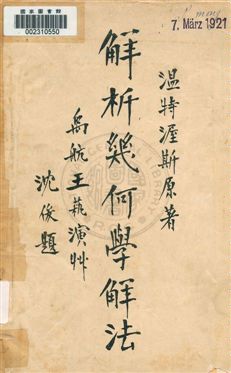 國家圖書館
002310550
7. März 1921
溫特渥斯原著
解析幾何學解法
禹航王藝演艸
沈俊題